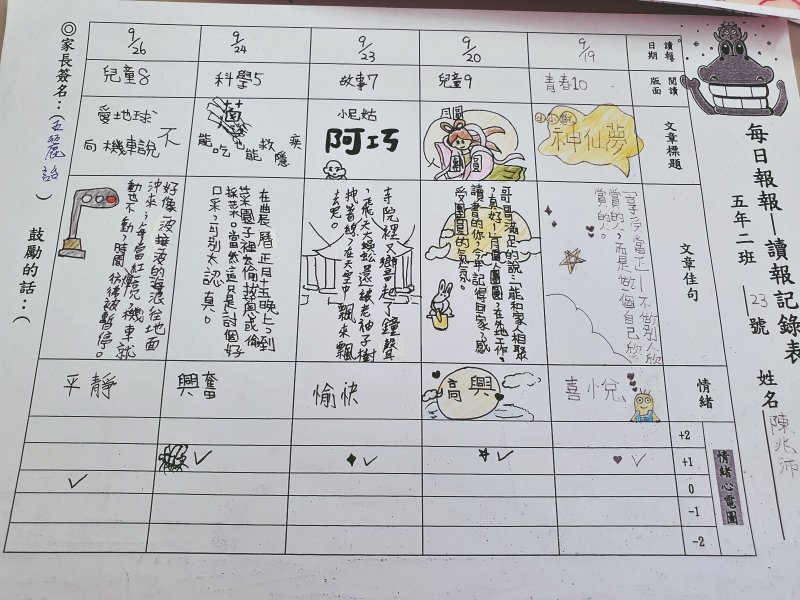 每日報報—讀報記錄表
五年二班 23號 姓名 陳兆沛
讀報日期
9/19
9/20
9/23
9/24
9/26
閱讀版面
青春10
兒童9
故事7
科學5
兒童8
文章標題
神仙夢
月圓
團圓
小尼姑
阿巧
菇
能吃也能救隱疾
愛地球
向機車說不
文章佳句
「享受當正—不做別人欣
賞的人,而是做一個自己欣
賞的人。
哥哥滿足的說:「能和家人相聚
,真好!」月圓人團圓,在外地工作、
讀書的你,今年記得回家感
受團圓的氣氛。
寺院裡又響起了鐘聲
,飛天蜈蚣還被老神子樹
拽著線,在天空中飄來飄
去呢。
在農曆正月十五晚上,到
菜園子裡去偷拔蔥或偷
採菜。當然這只是討個好
口采,可別太認真。
好像一波接波的海浪往地面
沖來,每當紅燈亮,機車就
動也不動,時間彷彿被暫停。
情緒
喜悅
高興
愉快
興奮
平靜
情緒心電圖
+2
+1
0
-1
-2
◎家長簽名:( ) 鼓勵的話:(